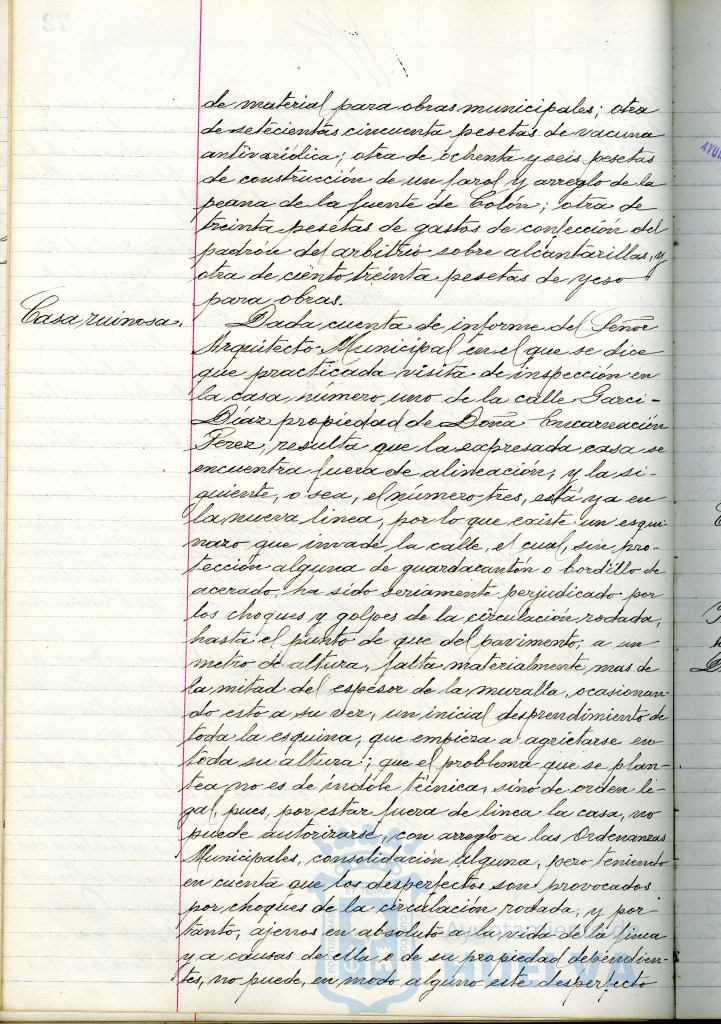 de material para obras municipales; otra
de setecientas cincuenta pesetas de vacuna
antivariólica; otra de ochenta y seis pesetas
de construcción de un farol y arreglo de la
peana de la fuente de Colón; otra de
treinta pesetas de gastos de confección del
padrón del arbitrio sobre alcantarillas, y
otra de ciento treinta pesetas de yeso
para obras.
Casa ruinosa.
Dada cuenta de informe del Señor
Arquitecto Municipal en el que se dice
que practicada visita de inspección en
la casa número uno de la calle Garci-
Díaz propiedad de Doña Encarnación
Perez, resulta que la expresada casa se
encuentra fuera de alineación, y la si-
guiente, o sea, el número tres, está ya en
la nueva linea, por lo que existe un esqui-
nazo que invade la calle, el cual, sin pro-
tección alguna de guardacantón o bordillo de
acerado, ha sido seriamente perjudicado por
los choques y golpes de la circulación rodada,
hasta el punto de que del pavimento, a un
metro de altura, falta materialmente mas de
la mitad del espesor de la muralla, ocasionan-
do esto a su vez, un inicial desprendimiento de
toda la esquina, que empieza a agrietarse en
toda su altura; que el problema que se plan-
tea no es de índole técnica, sino de orden le-
gal, pues, por estar fuera de linea la casa, no
puede autorizarse, con arreglo a las Ordenanzas
Municipales, consolidación alguna, pero teniendo
en cuenta que los desperfectos son provocados
por choques de la circulación rodada, y por
tanto, ajenos en absoluto a la vida de la finca
y a causas de ella o de su propiedad dependien-
tes, no puede, en modo alguno este desperfecto
Ayuntamiento de
HUELVA